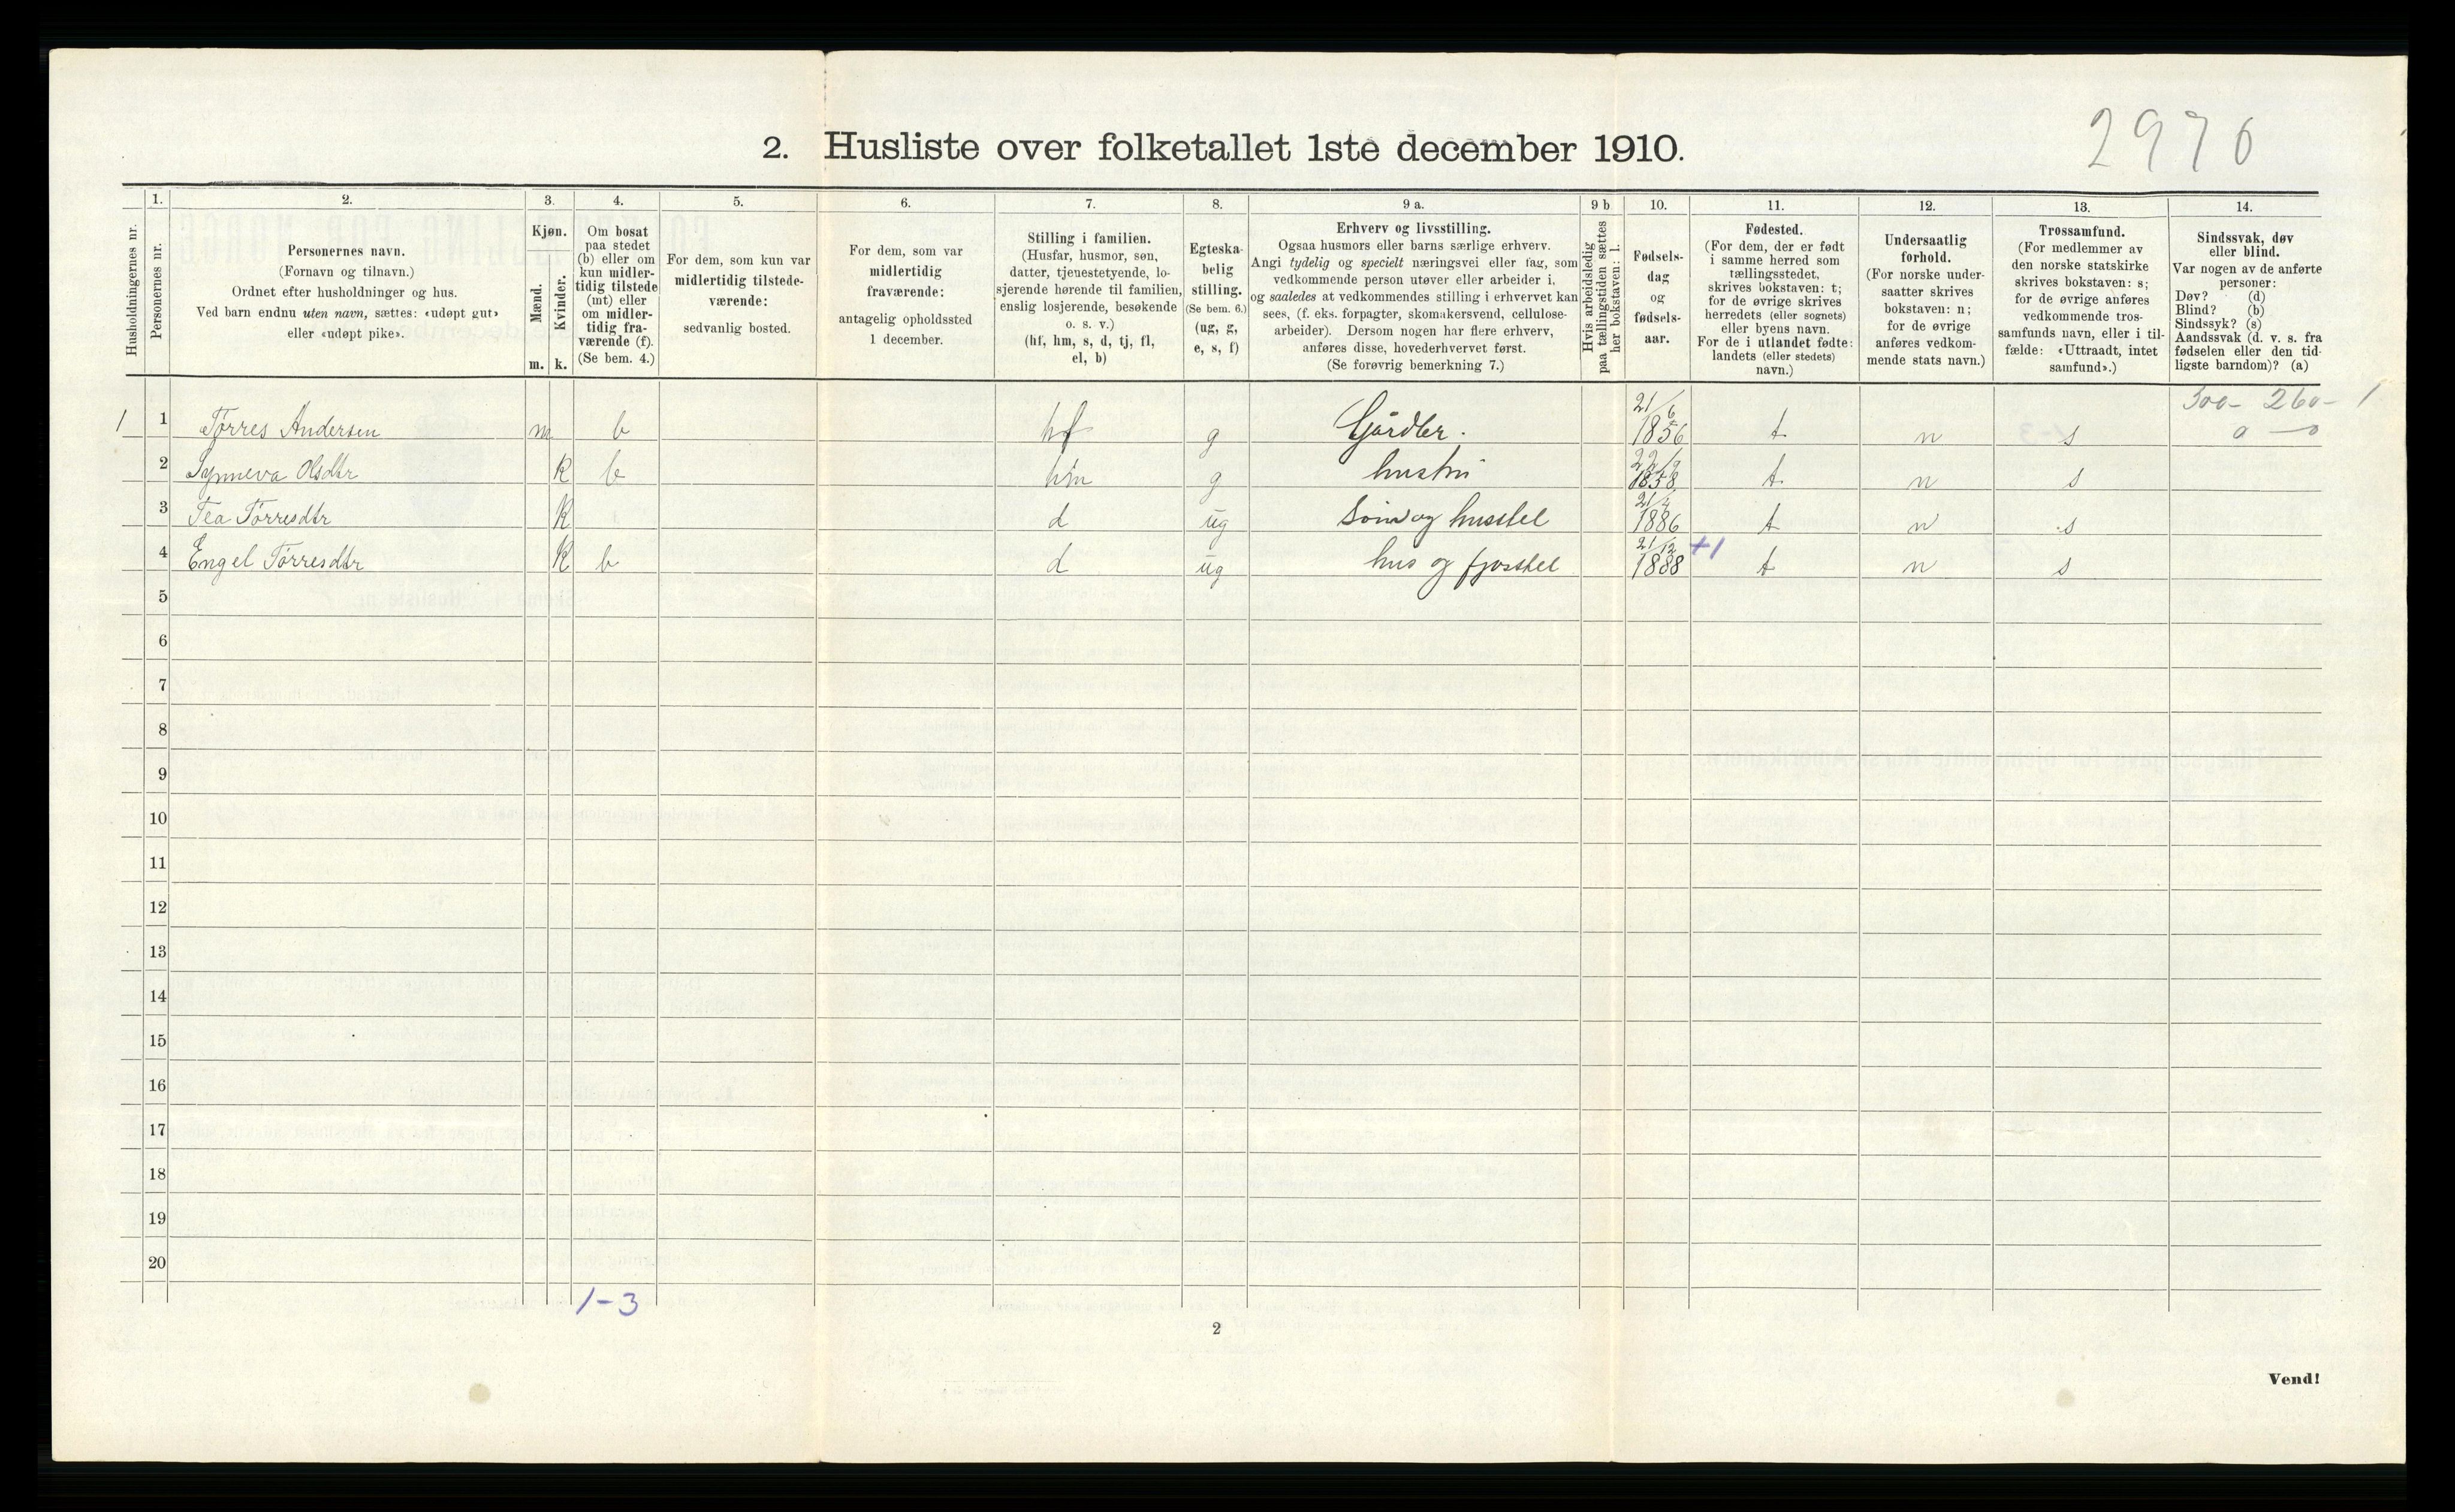 2976
2. Husliste over folketallet 1ste december 1910.
Husholdningernes nr.
1. Personernes nr.
2. Personernes navn.
(Fornavn og tilnavn.)
Ordnet efter husholdninger og hus.
Ved barn endnu uten navn, sættes: «udøpt gut»
eller «udøpt pike».
3. Kjøn.
Mænd. m.
Kvinder. k.
4. Om bosat
paa stedet
(b) eller om
kun midler-
tidig tilstede
(mt) eller
om midler-
tidig fra-
værende (f).
(Se bem. 4.)
5. For dem, som kun var
midlertidig tilstede-
værende:
sedvanlig bosted.
6. For dem, som var
midlertidig
fraværende:
antagelig opholdssted
1 december.
7. Stilling i familien.
(Husfar, husmor, søn,
datter, tjenestetyende, lo-
sjerende hørende til familien,
enslig losjerende, besøkende
o. s. v.)
(hf, hm, s, d, tj, fl,
el, b)
8. Egteska-
belig
stilling.
(Se bem. 6.)
(ug, g,
e, s, f)
9 a. Erhverv og livsstilling.
Ogsaa husmors eller barns særlige erhverv.
Angi tydelig og specielt næringsvei eller fag, som
vedkommende person utøver eller arbeider i,
og saaledes at vedkommendes stilling i erhvervet kan
sees, (f. eks. forpagter, skomakersvend, cellulose-
arbeider). Dersom nogen har flere erhverv,
anføres disse, hovederhvervet først.
(Se forøvrig bemerkning 7.)
9 b Hvis arbeidsledig
paa tællingstiden sættes
her bokstaven: l.
10. Fødsels-
dag
og
fødsels-
aar.
11. Fødested.
(For dem, der er født
i samme herred som
tællingsstedet,
skrives bokstaven: t;
for de øvrige skrives
herredets (eller sognets)
eller byens navn.
For de i utlandet fødte:
landets (eller stedets)
navn.)
12. Undersaatlig
forhold.
(For norske under-
saatter skrives
bokstaven: n;
for de øvrige
anføres vedkom-
mende stats navn.)
13. Trossamfund.
(For medlemmer av
den norske statskirke
skrives bokstaven: s;
for de øvrige anføres
vedkommende tros-
samfunds navn, eller i til-
fælde: «Uttraadt, intet
samfund».)
14. Sindssvak, døv
eller blind.
Var nogen av de anførte
personer:
Døv? (d)
Blind? (b)
Sindssyk? (s)
Aandssvak (d. v. s. fra
fødselen eller den tid-
ligste barndom)? (a)
300- 260- 1
1 1 Tørres Andersen m b hf g Gårdbr. 21/6 1856 t n s 0 - 0
2 Synneva Olsdtr K b hm g hustru 22/9 1858 t n s
3 Tea Tørresdtr K d ug Søm og husstel 21/4 1886 t n s
4 Engel Tørresdtr K b d ug hus og fjosstel 21/12 1888 +1 t n s
5
6
7
8
9
10
11
12
13
14
15
16
17
18
19
20
1-3
2
Vend!